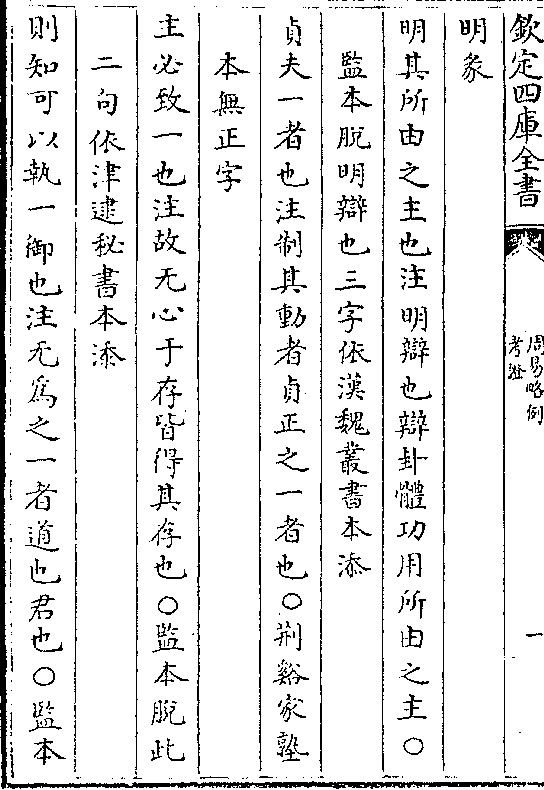 欽定四庫全書
周易略例
考證
一
明彖
明其所由之主也注明辯也辯卦體功用所由之主〇
監本脫明辯也三字依漢魏叢書本添
貞夫一者也注制其動者貞正之一者也〇荆谿家塾
本無正字
主必致一也注故无心于存皆得其存也〇監本脫此
二句依津逮秘書本添
則知可以執一御也注无為之一者道也君也〇監本